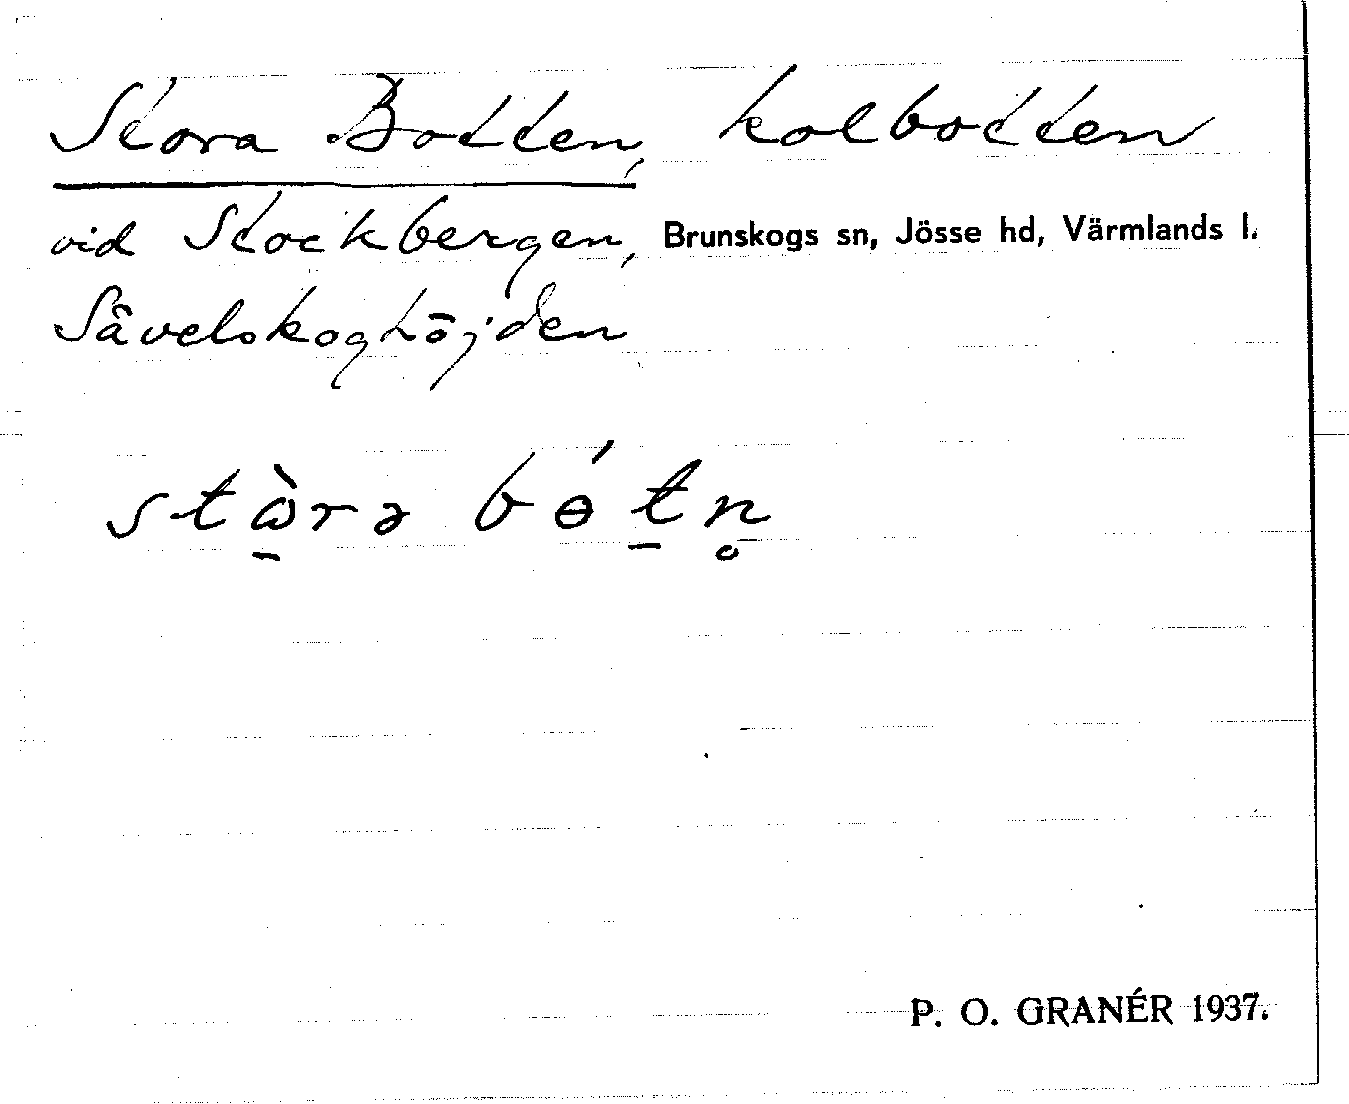 Stora Botten, kolbotten
vid Stockbergen, Brunskogs sn, Jösse hd, Värmlands l.
Sävelskoghöjden
stὼ̱rə bɵ́ṯn̥
P. O. GRANÉR 1937.